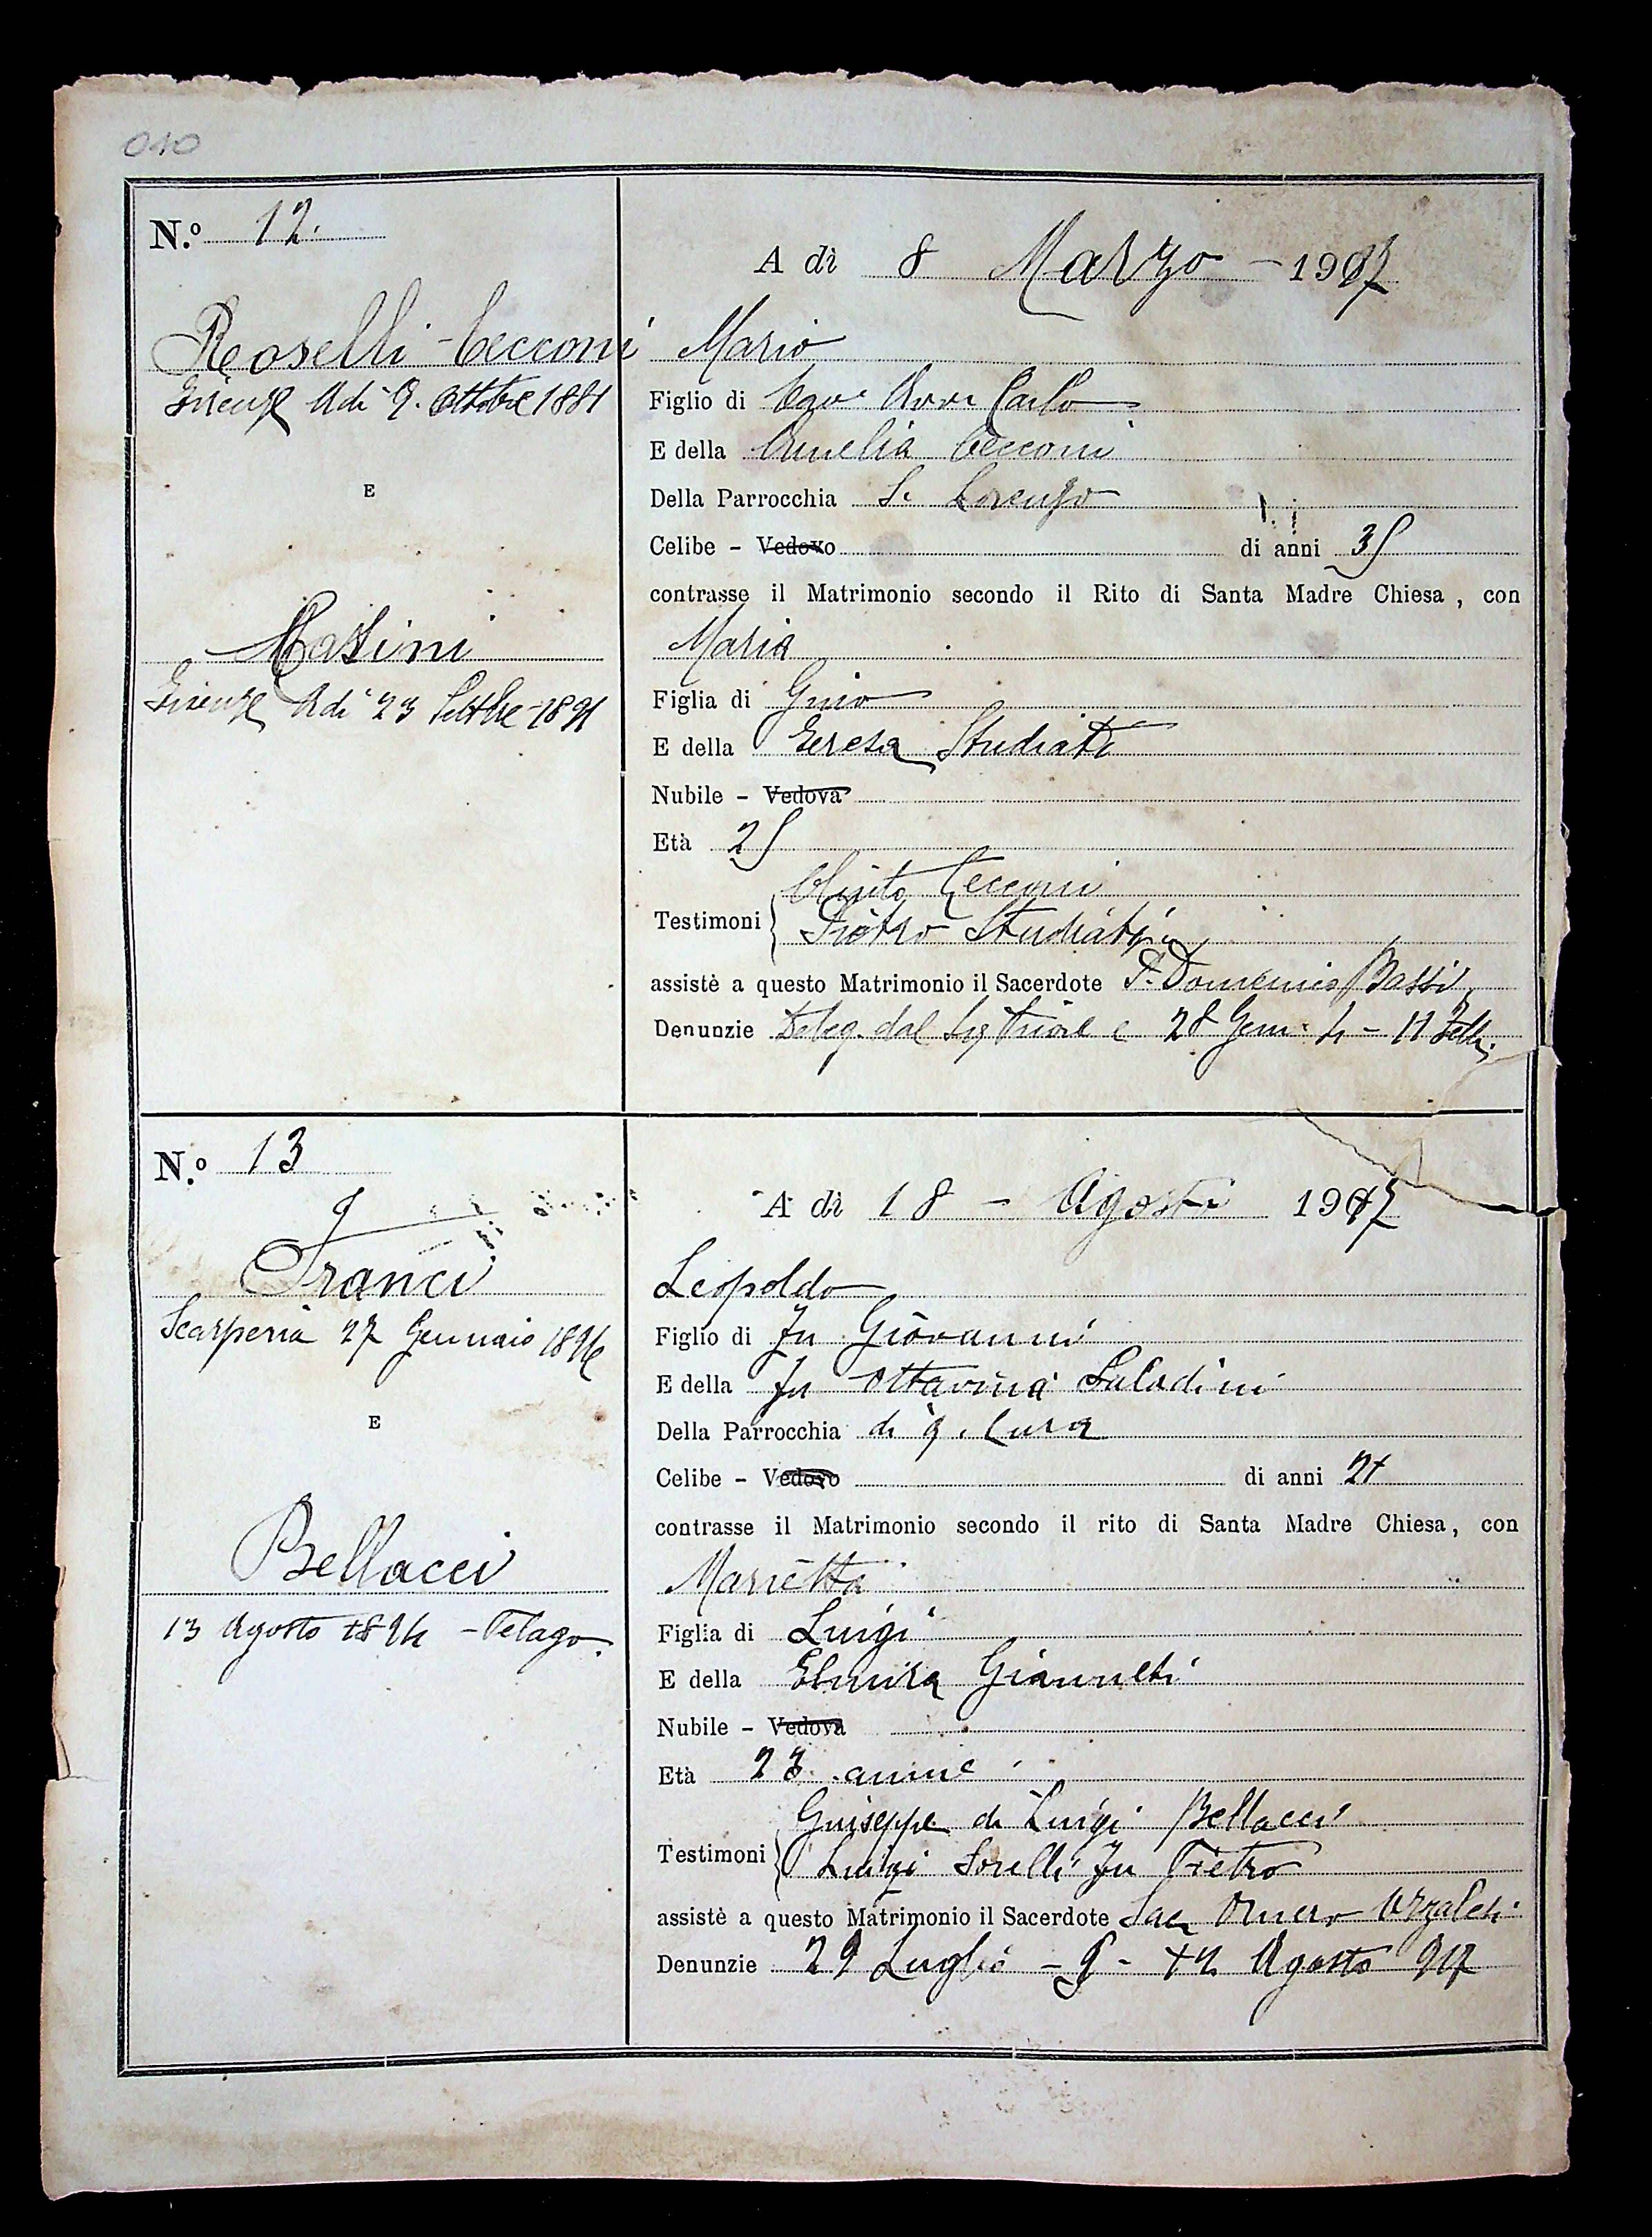 010
N.º 12.
A dì 8 Marzo - 1917
Roselli-Cecconi
Mario
Firenze Adì 9. Ottobre 1881
Figlio di Cav. Avv. Carlo
E della Amelia Cecconi
E
Della Parrocchia S. Lorenzo
Celibe - Vedovo di anni 35
contrasse il Matrimonio secondo il Rito di Santa Madre Chiesa, con
Masini
Maria
Firenze Adì 23 1891
Figlia di Gino
E della Teresa Studiati
Nubile - Vedova
Età 25
Cecconi
Testimoni
Pietro Studiati
assistè a questo Matrimonio il Sacerdote P. Domenico Bassi
Denunzie Deleg. dal Sig Priore e 28 Genn. 4 - 11 Febb.
N.º 13
A dì 18 - Agosto 1917
Franci
Leopoldo
Scarperia 27 Gennaio 1896
Figlio di Fu Giovanni
E della Fu Ottavina Saladini
E
Della Parrocchia di q. Cura
Celibe - Vedovo di anni 21
contrasse il Matrimonio secondo il rito di Santa Madre Chiesa, con
Bellacci
Marietta
13 Agosto 1894 - Pelago.
Figlia di Luigi
E della Elmira Giannelli
Nubile - Vedova
Età 23
Giuseppe di Luigi Bellacci
Testimoni
Luigi Sorelli fu Pietro
assistè a questo Matrimonio il Sacerdote Sac Omero
Denunzie 29 Luglio - 5 - 12 Agosto 917